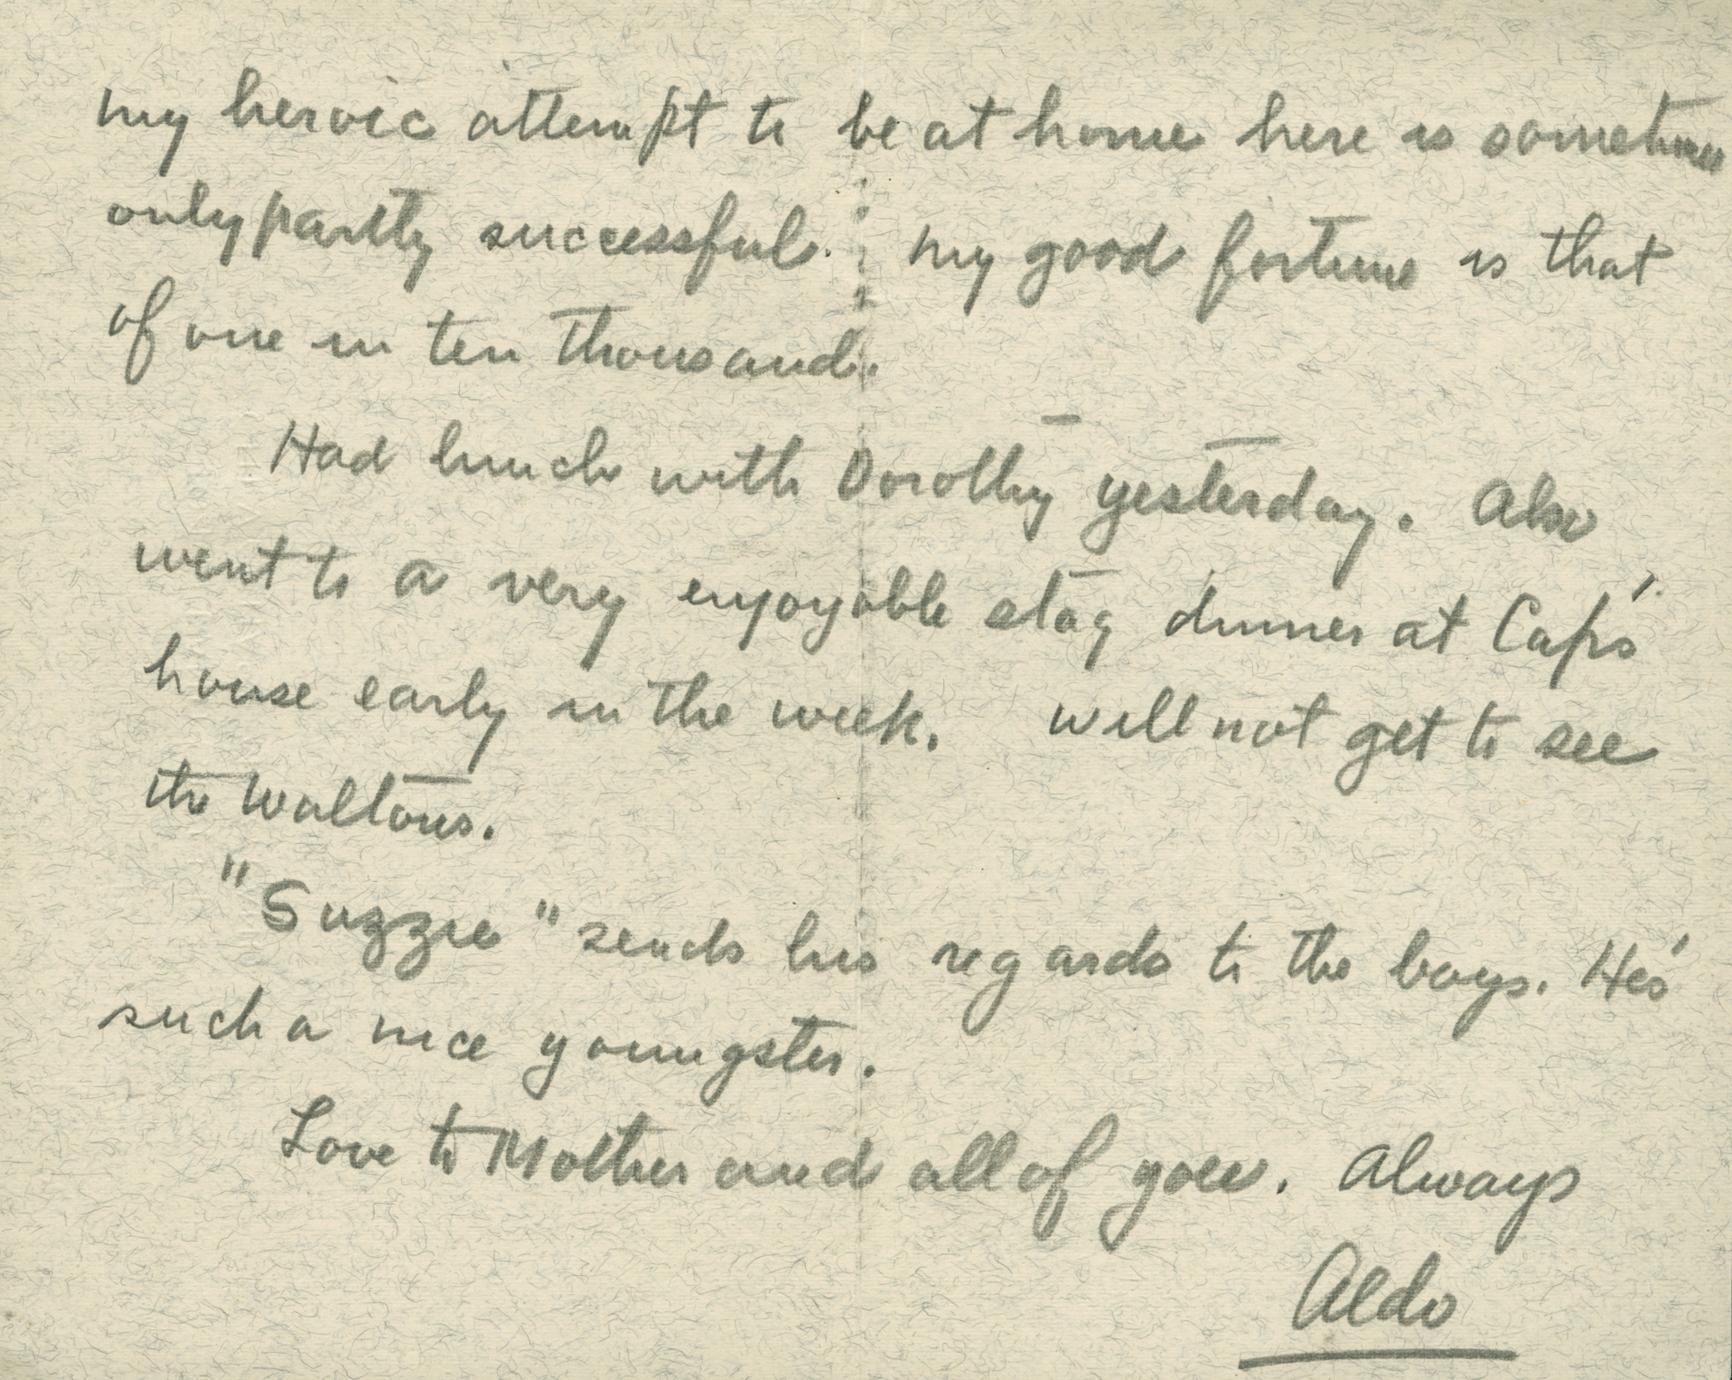 my heroic attempt to be at home here is sometimes
only partly successful. My good fortune is that
of one in ten thousand.
Had lunch with Dorothy yesterday. Also
went to a very enjoyable stag dinner at Cap's
house early in the week. Will not get to see
the Waltons.
"Suzzie" sends his regards to the boys. He's
such a nice youngster.
Love to Mother and all of you. Always
Aldo